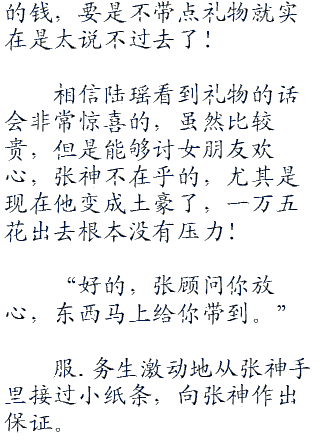 的钱，要是不带点礼物就实
在是太说不过去了！
相信陆瑶看到礼物的话
会非常惊喜的，虽然比较
贵，但是能够讨女朋友欢
心，张神不在乎的，尤其是
现在他变成土豪了，一万五
花出去根本没有压力！
“好的，张顾问你放
心，东西马上给你带到。”
服.务生激动地从张神手
里接过小纸条，向张神作出
保证。